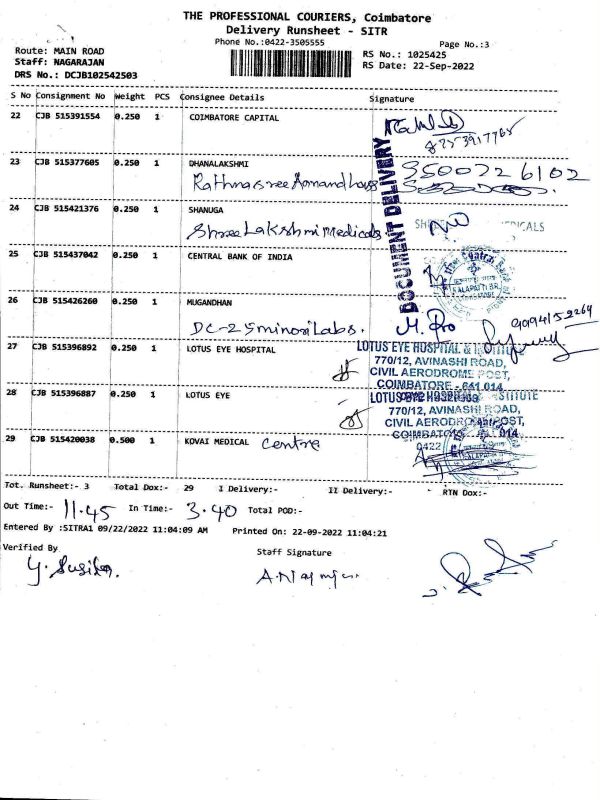 THE PROFESSIONAL COURIERS, Coimbatore
Delivery Runsheet - SITR
Phone No.:0422-3505555
Page No.:3
Route: MAIN ROAD
Staff: NAGARAJAN
DRS No.: DCJB102542503
RS No.: 1025425
RS Date: 22-Sep-2022
S No Consignment No Weight PCS Consignee Details Signature
22 CJB 515391554 0.250 1 COIMBATORE CAPITAL
23 CJB 515377605 0.250 1 DHANALAKSHMI
9500726102
DOCUMENT DELIVERY
24 CJB 515421376 0.250 1 SHANUGA
Shree Lakshmi Medicals
25 CJB 515437042 0.250 1 CENTRAL BANK OF INDIA
26 CJB 515426260 0.250 1 MUGANDHAN
DC-2 Sminori Labs.
27 CJB 515396892 0.250 1 LOTUS EYE HOSPITAL
LOTUS EYE HOSPITAL & INSTITUTE
770/12, AVINASHI ROAD,
CIVIL AERODROME POST,
COIMBATORE - 641 014
28 CJB 515396887 0.250 1 LOTUS EYE
LOTUS EYE HOSPITAL & INSTITUTE
770/12, AVINASHI ROAD,
CIVIL AERODROME POST,
COIMBATORE 014
0422
29 CJB 515420038 0.500 1 KOVAI MEDICAL Centre
Tot. Runsheet:- 3 Total Dox:- 29 I Delivery:- II Delivery:- RTN Dox:-
Out Time:- 11.45 In Time:- 3.40 Total POD:-
Entered By :SITRA1 09/22/2022 11:04:09 AM Printed On: 22-09-2022 11:04:21
Verified By
Staff Signature